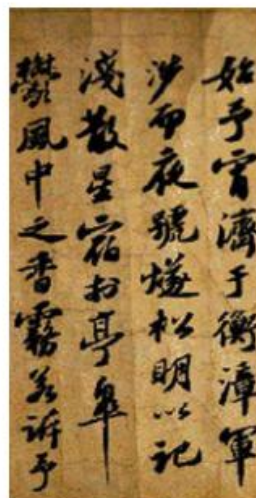 始予宵濟于衡漳軍
涉而夜號燧松明以記
淺散星宿於亭皋
鬱風中之香霧若訴予